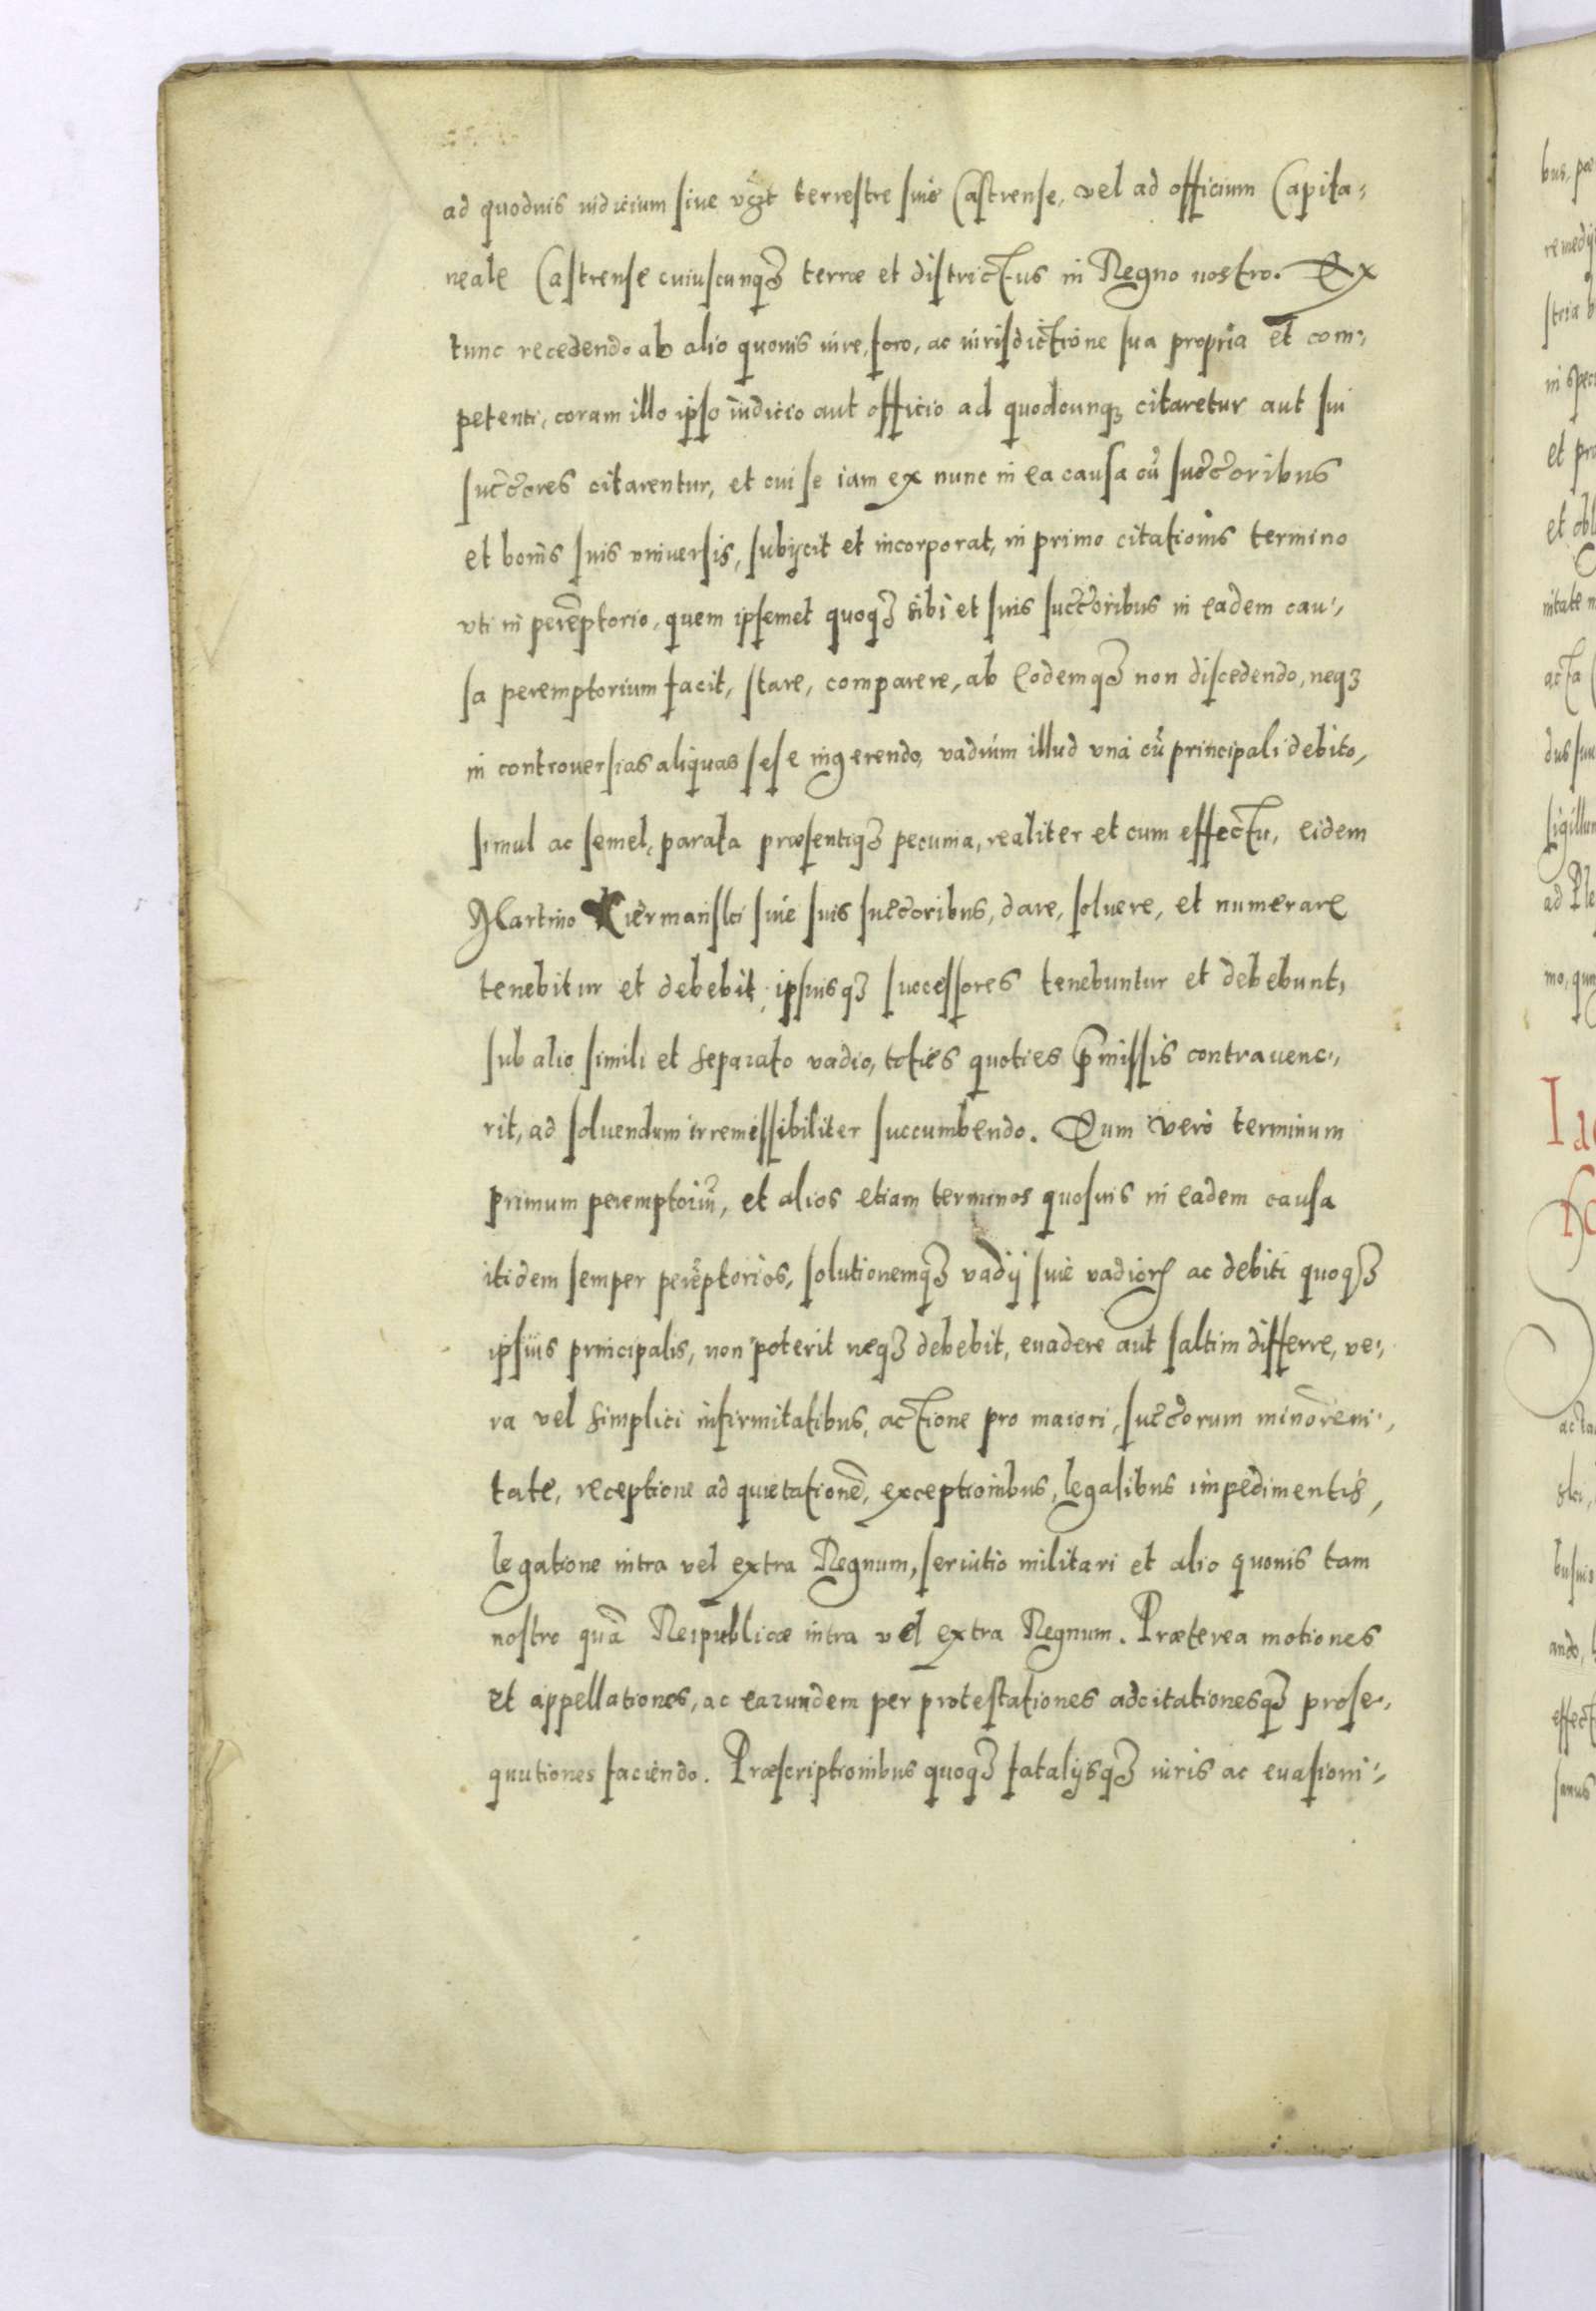 ad quoduis iudicium siue terrestre siue Castrense, vel ad officium Capita-
neale Castrense cuiuscunqꝫ terræ et districtus in Regno nostro. Ex
tunc recedendo ab alio quouis iure, foro, ac iurisdictione sua propria et com-
petenti, coram illo ipso iudicio aut officio ad quodcunqꝫ citaretur aut sui
succ̃ores citarentur, et cui se iam ex nunc in ea causa cū succ̃oribus
et bonis suis vniuersis, subijcit et incorporat, in primo citationis termino
vti in perēptorio, quem ipsemet quoqꝫ sibi et suis succ̃oribus in eadem cau-
sa peremptorium facit, stare, comparere, ab eodemqꝫ non discedendo, neqꝫ
in controuersias aliquas sese ingerendo, vadium illud vnà cū principali debito,
simul ac semel, parata præsentiqꝫ pecunia, realiter et cum effectu, eidem
Martino siue suis succ̃oribus, dare, soluere, et numerare
tenebitur et debebit, ipsiusqꝫ successores tenebuntur et debebunt,
sub alio simili et separato vadio, toties quoties p̄missis contrauene-
rit, ad soluendum irremissibiliter succumbendo. Quem verò terminum
primum peremptoriū, et alios etiam terminos quosuis in eadem causa
itidem semper perēptorios, solutionemqꝫ vadij siue vadiorꝫ ac debiti quoqꝫ
ipsius principalis, non poterit neqꝫ debebit, euadere aut saltim differre, ve-
ra vel simplici infirmitatibus, actione pro maiori, succ̃orum minoreni-
tate, receptione ad quietationē, exceptionibus, legalibus impedimentis,
legatione intra vel extra Regnum, seruitio militari et alio quouis tam
nostro quā Reipublicæ intra vel extra Regnum. Præterea motiones
et appellationes, ac earundem per protestationes adcitationesqꝫ prose-
quutiones faciendo. Præscriptionibus quoqꝫ fatalijsqꝫ iuris ac euasioni-